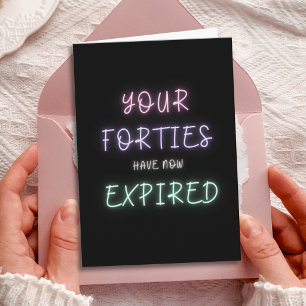 YOUR
FORTIES
HAVE NOW
EXPIRED